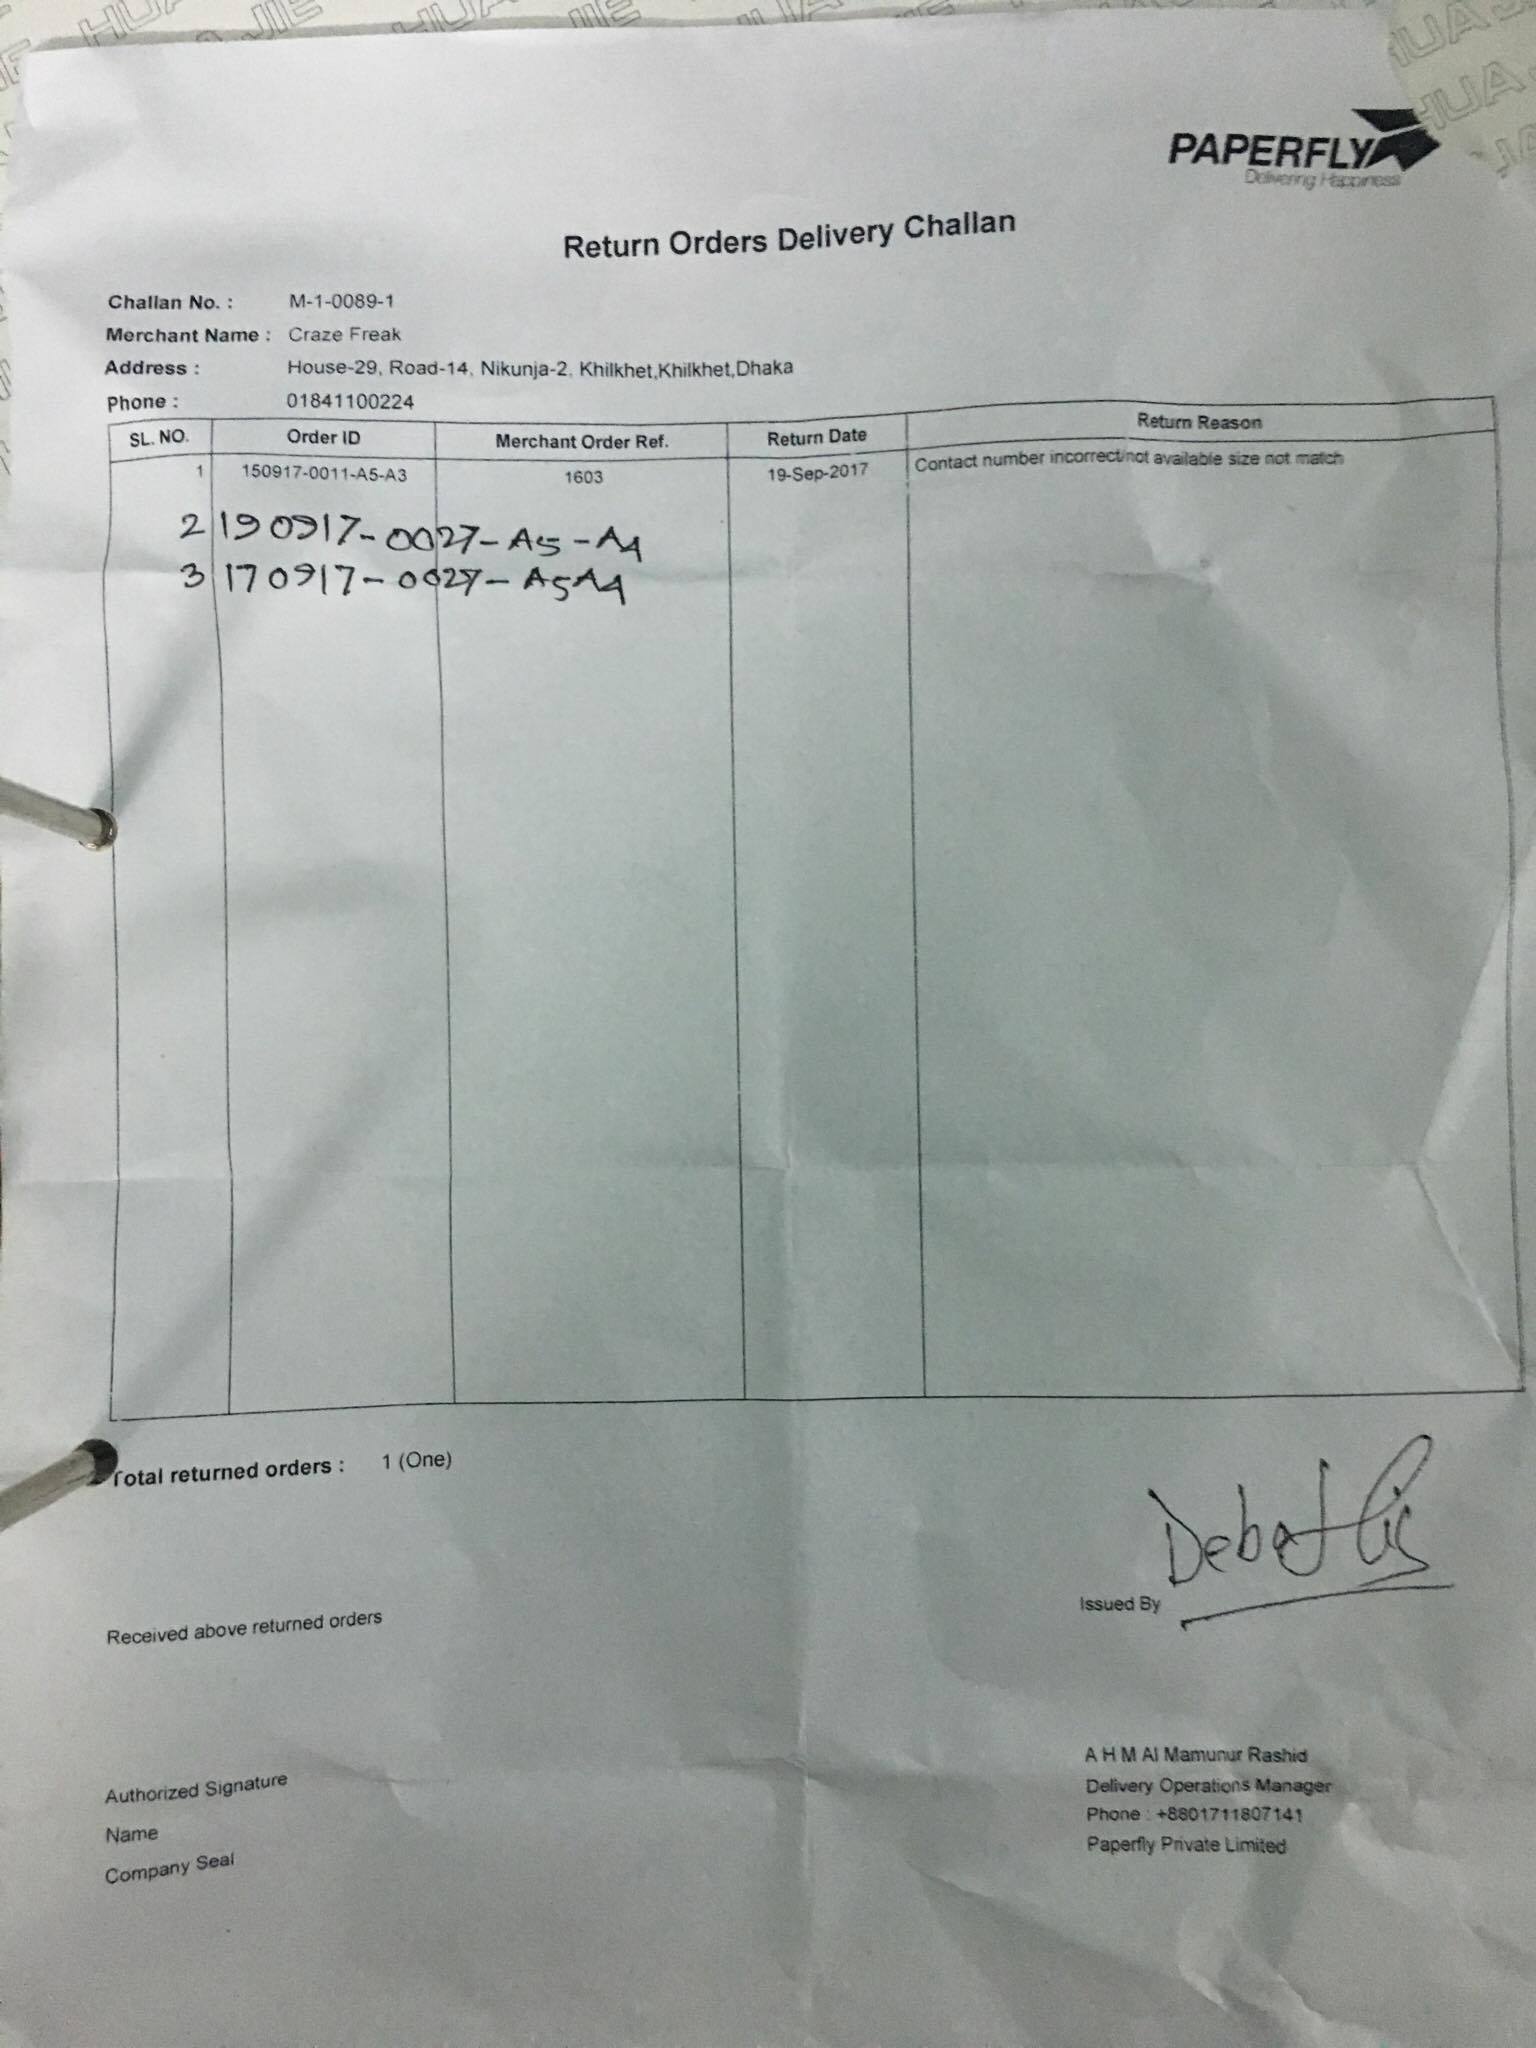 PAPERFLY
Delivering Happiness
Return Orders Delivery Challan
Challan No. : M-1-0089-1
Merchant Name : Craze Freak
Address : House-29, Road-14, Nikunja-2, Khilkhet,Khilkhet,Dhaka
Phone : 01841100224
SL. NO. Order ID Merchant Order Ref. Return Date Return Reason
1 150917-0011-A5-A3 1603 19-Sep-2017 Contact number incorrect/not available size not match
2 190917-0027-A5-A4
3 170917-0027-A5A4
Total returned orders : 1 (One)
Issued By
Received above returned orders
Authorized Signature
Name
Company Seal
A H M Al Mamunur Rashid
Delivery Operations Manager
Phone : +8801711807141
Paperfly Private Limited